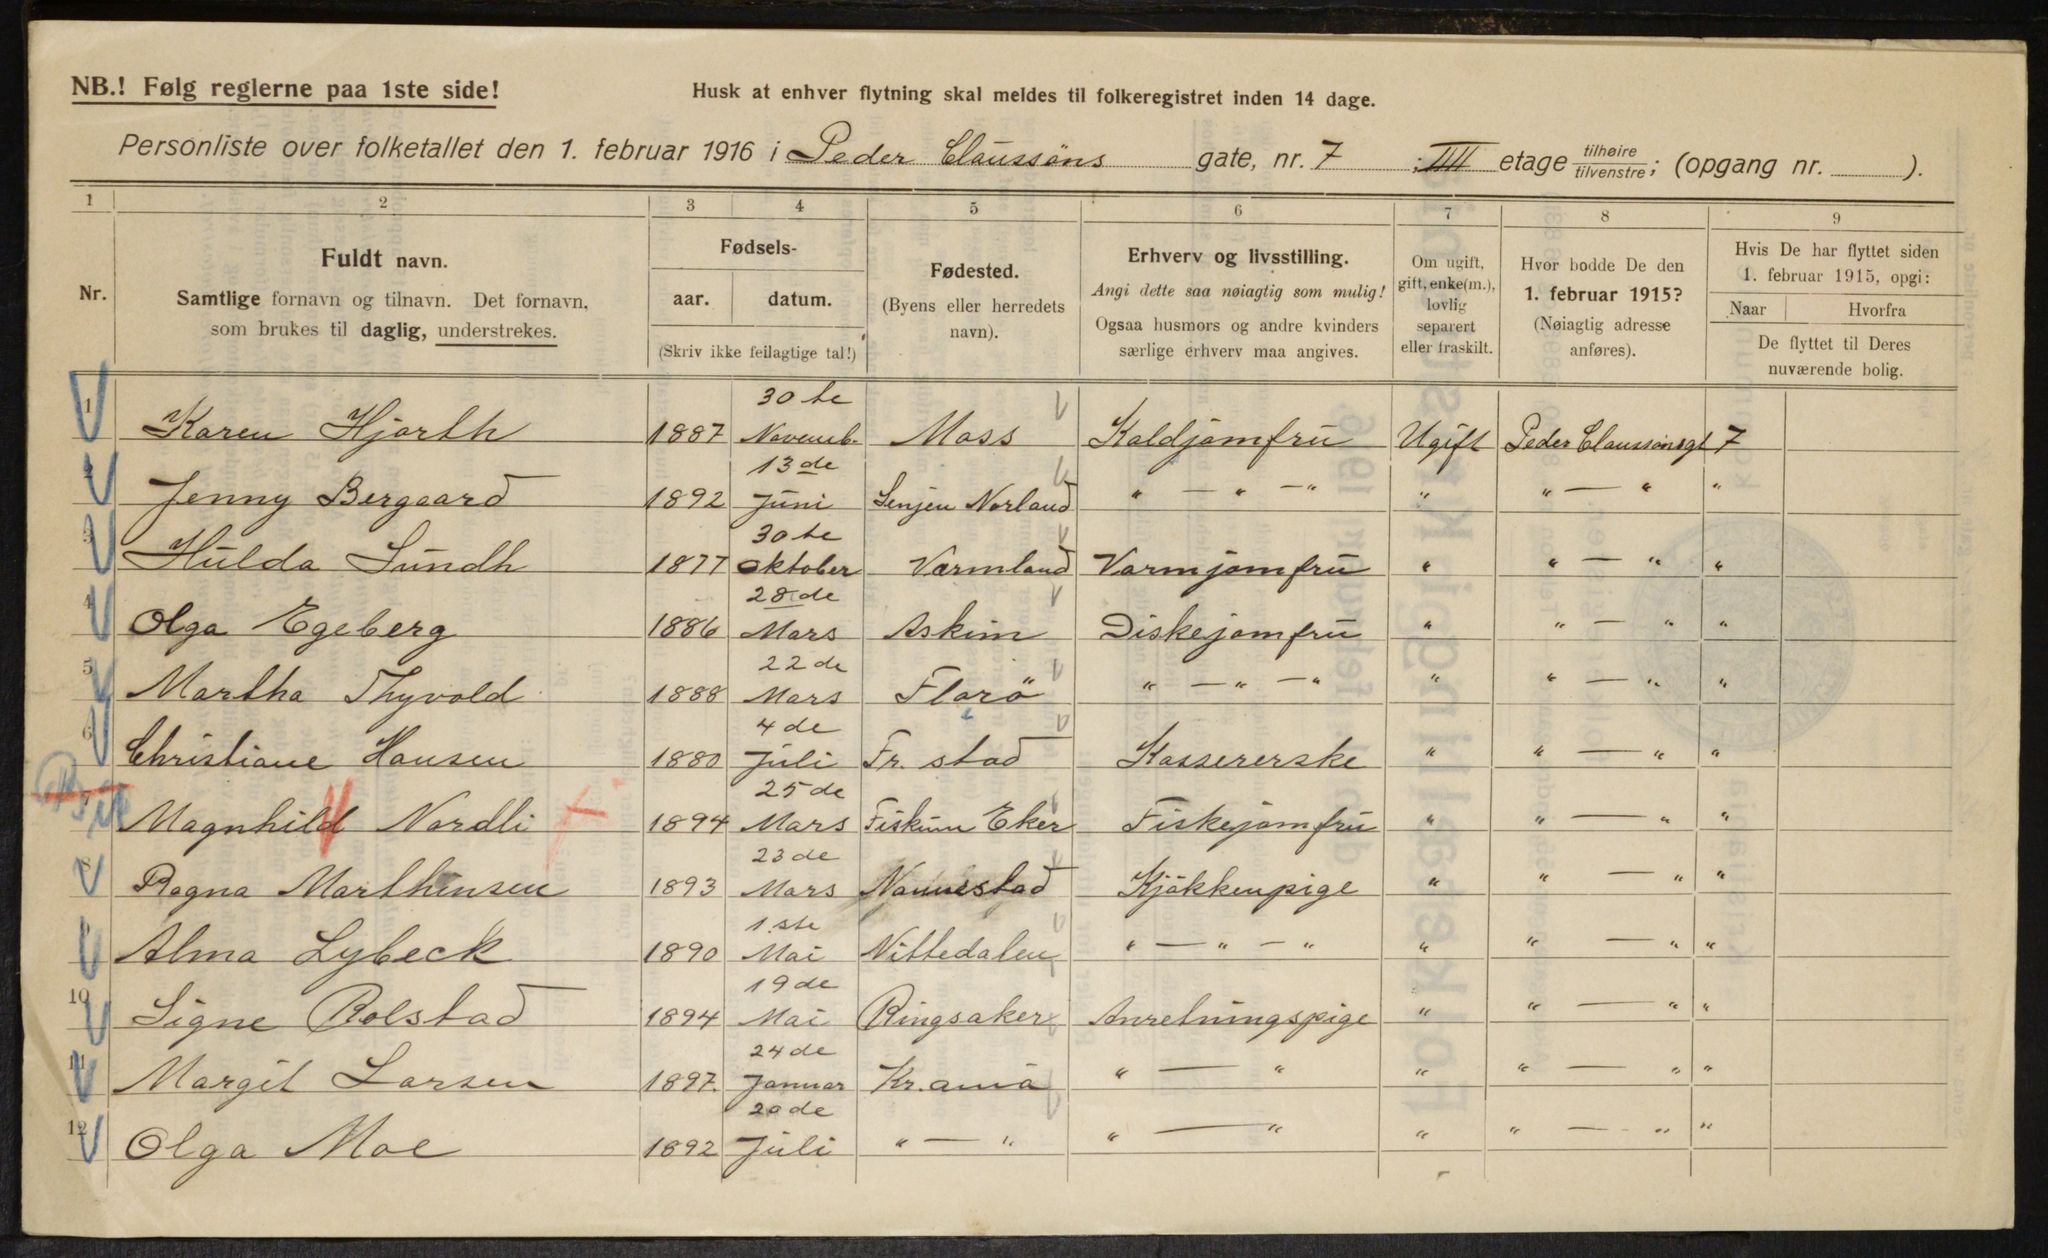 NB.! Følg reglerne paa 1ste side!
Husk at enhver flytning skal meldes til folkeregistret inden 14 dage.
Personliste over folketallet den 1. februar 1916 i Peder Claussøns gate, nr. 7 ; IIII etage tilhøire / tilvenstre; (opgang nr. ).
1 2 3 4 5 6 7 8 9
Nr.
Fuldt navn.
Samtlige fornavn og tilnavn. Det fornavn,
som brukes til daglig, understrekes.
Fødsels-
aar. datum.
(Skriv ikke feilagtige tal!)
Fødested.
(Byens eller herredets
navn).
Erhverv og livsstilling.
Angi dette saa nøiagtig som mulig!
Ogsaa husmors og andre kvinders
særlige erhverv maa angives.
Om ugift,
gift, enke(m.),
lovlig
separert
eller fraskilt.
Hvor bodde De den
1. februar 1915?
(Nøiagtig adresse
anføres).
Hvis De har flyttet siden
1. februar 1915, opgi:
Naar Hvorfra
De flyttet til Deres
nuværende bolig.
1 Karen Hjorth 1887 30te Novemb. Moss Koldjomfru Ugift Peder Claussønsgt 7
2 Jenny Bergaard 1892 13de Juni Senjen Norland " — " — " " " — " "
3 Hulda Sundh 1877 30te Oktober Värmland Varmjomfru " " — " "
4 Olga Egeberg 1886 28de Mars Askim Diskejomfru " " — " "
5 Martha Thyvold 1888 22de Mars Florö " — " — " " " — " "
6 Christiane Hansen 1880 4de Juli Fr. stad Kassererske " " — " "
7 Magnhild Nordli 1894 25de Mars Fiskum Eker Fiskejomfru " " — " "
8 Ragna Marthinsen 1893 23de Mars Nannestad Kjökkenpige " " — " "
9 Alma Lybeck 1890 1ste Mai Nittedalen " — " — " " " — " "
10 Signe Rolstad 1894 19de Mai Ringsaker Anretningspige " " — " "
11 Margit Larsen 1897. 24de Januar Kr.ania " — " " " — " "
12 Olga Moe 1892 20de Juli " — " " — " " " — " "